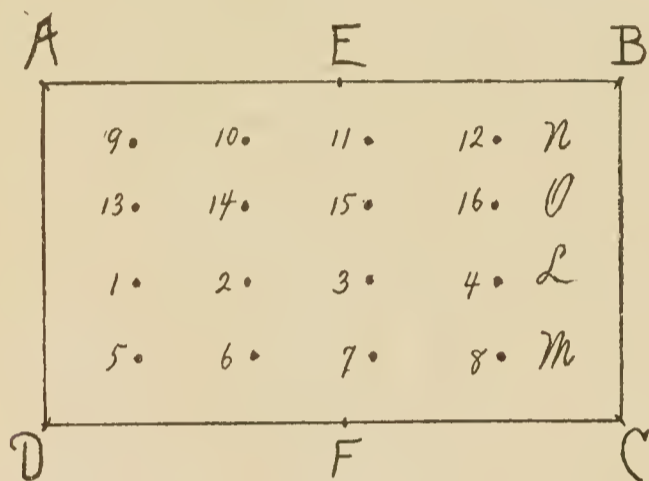 A E B
9 10 11 12 N
13 14 15 16 O
1 2 3 4 L
5 6 7 8 M
D F C